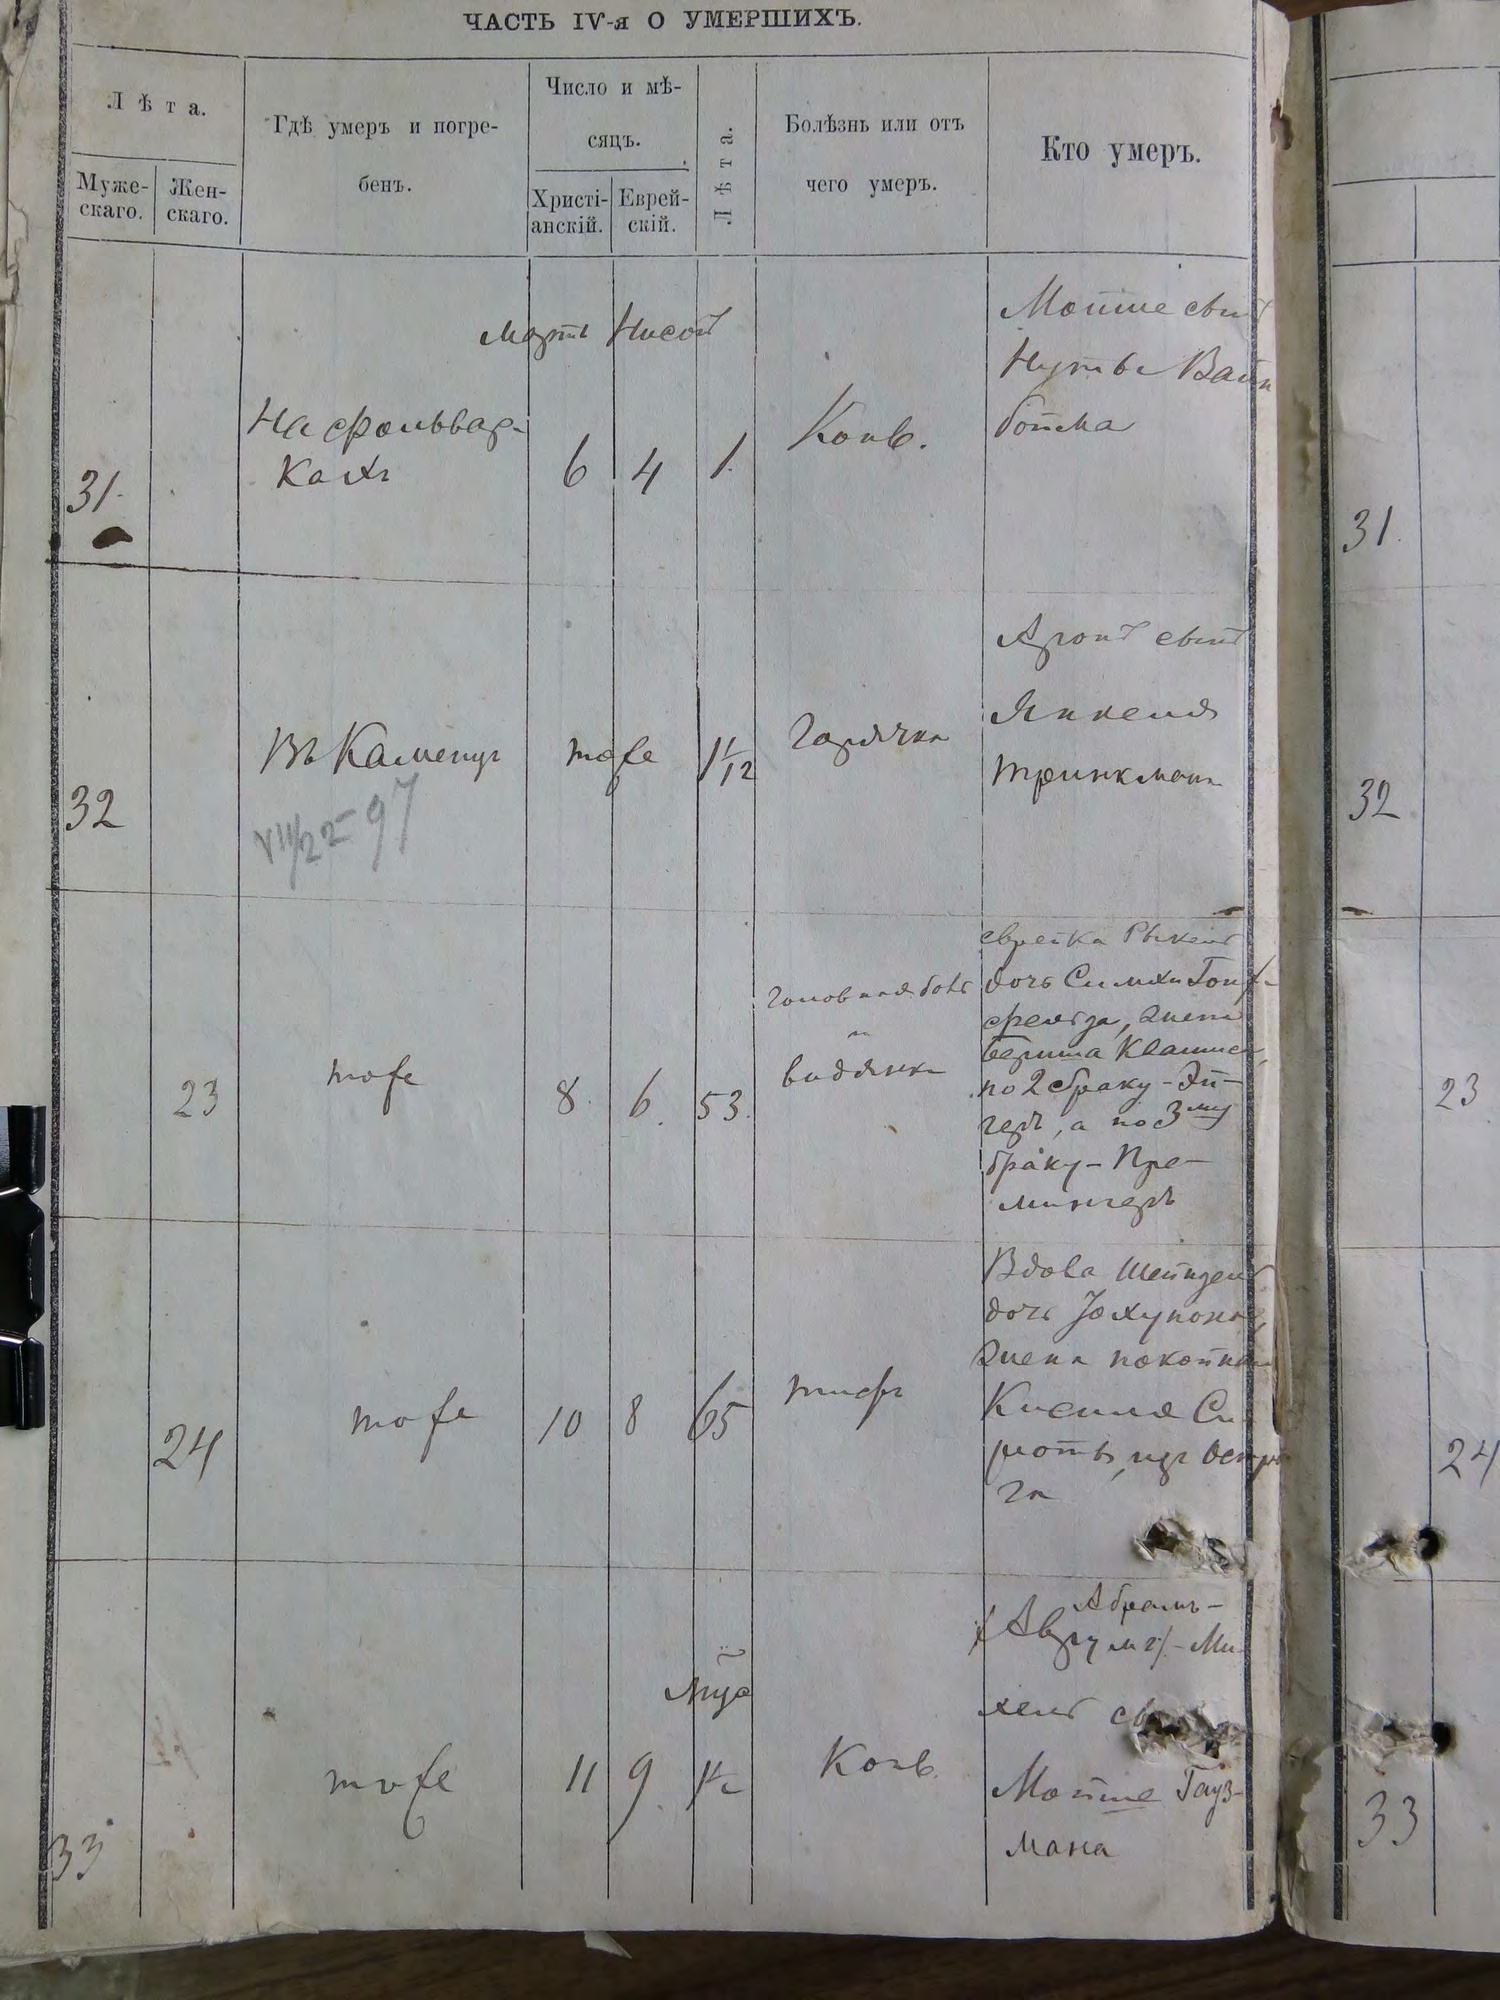 ЧАСТЬ IV-я О УМЕРШИХЪ.
Лѣта.
Муже-
скаго.
Жен-
скаго.
Гдѣ умеръ и погре-
бенъ.
Число и мѣ-
сяцъ.
Христі-
анскій.
Еврей-
скій.
Лѣта.
Болѣзнь или отъ
чего умеръ.
Кто умеръ.
Мартъ Нисонъ
31.
На фольвар-
кахъ
6 4 1.
Конв.
Мойше сынъ
Нуты Вайн
бойма
31.
32
Въ Каменцѣ
VII/22-97
тоже
1 1/12
Горячка
Аронъ сынъ
Янкеля
Тринкмана
32
23
тоже
8. 6. 53.
Головная боль
и
водянка
еврейка Рыкель
дочь Симхи Гольд-
фельда, жена
Бериша
по 2 браку - Эй-
геръ, а по 3му
браку - Пре-
мингеръ
23
24
тоже
10 8 65
тифъ
Вдова Шейндель
дочь
жена покойнаго
Киселя Си
роты, изъ Остро
га
24
33
тоже
11 9 1 1/2
Конв.
Абрамъ-
(Аврумъ)-Ми-
хель
Мойше Гауз-
мана
33